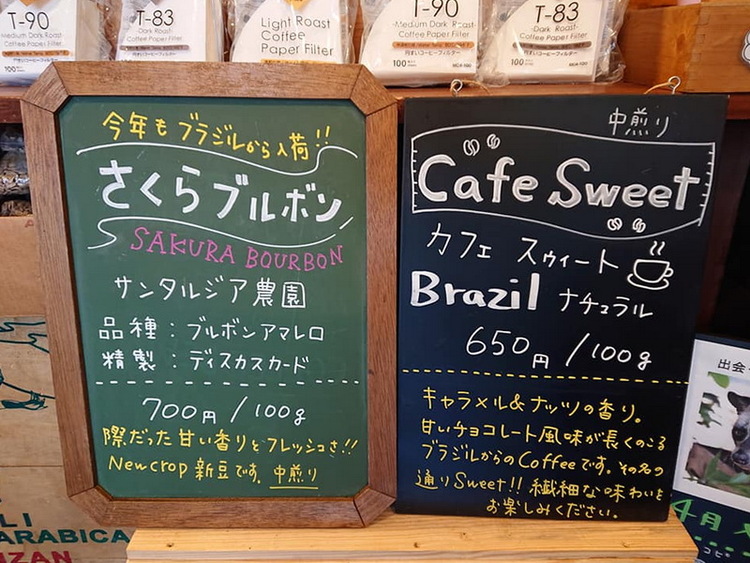 T-90
Coffee Paper Filter
T-83
Medium Dark Roast
Coffee Paper Filter
100
Light Roast
Coffee
Paper Filter
T-90
Medium Dark Roast
Coffee Paper Filter
100
T-83
Medium Dark Roast
Coffee Paper Filter
100
今年もブラジルから入荷!!
さくらブルボン
SAKURA BOURBON
サンタルジア農園
品種：ブルボンアマレロ
精製：ディスカスカード
700円/100g
際だった甘い香りとフレッシュさ!!
Newcrop 新豆です。中煎り
中煎り
Cafe Sweet
カフェ スウィート
Brazil ナチュラル
650円/100g
キャラメル&ナッツの香り。
甘いチョコレート風味が長くのこる
ブラジルからのCoffeeです。その名の
通りSweet!! 繊細な味わいを
お楽しみください。
出会
4月
コピ
LI
ARABICA